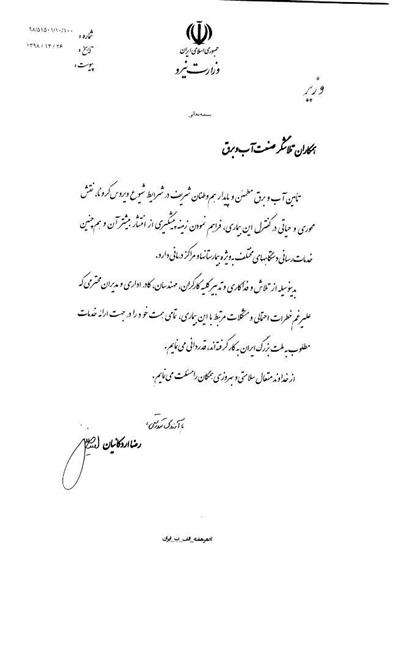 جمهوری اسلامی ایران
وزارت نیرو
شماره :
تاریخ :
۱۳۹۸ / ۱۲ / ۲۶
پیوست :
وزیر
بسمه‌تعالی
همکاران تلاشگر صنعت آب و برق
تأمین آب و برق مطمئن و پایدار هم وطنان شریف در شرایط شیوع ویروس کرونا، نقش
محوری و حیاتی در کنترل این بیماری، فراهم نمودن زمینه پیشگیری از انتشار بیشتر آن و هم‌چنین
خدمات رسانی دستگاههای مختلف به ویژه بیمارستانها و مراکز درمانی دارد.
بدینوسیله از تلاش و فداکاری و تدبیر کلیه کارگران، مهندسان، کادر اداری و مدیران محترمی که
علیرغم خطرات احتمالی و مشکلات مرتبط با این بیماری، تمامی همت خود را در جهت ارائه خدمات
مطلوب به ملت بزرگ ایران به کار گرفته‌اند، قدردانی می‌نمایم.
از خداوند متعال سلامتی و بهروزی همگان را مسئلت می‌نمایم.
با آرزوی تندرستی
رضا اردکانیان